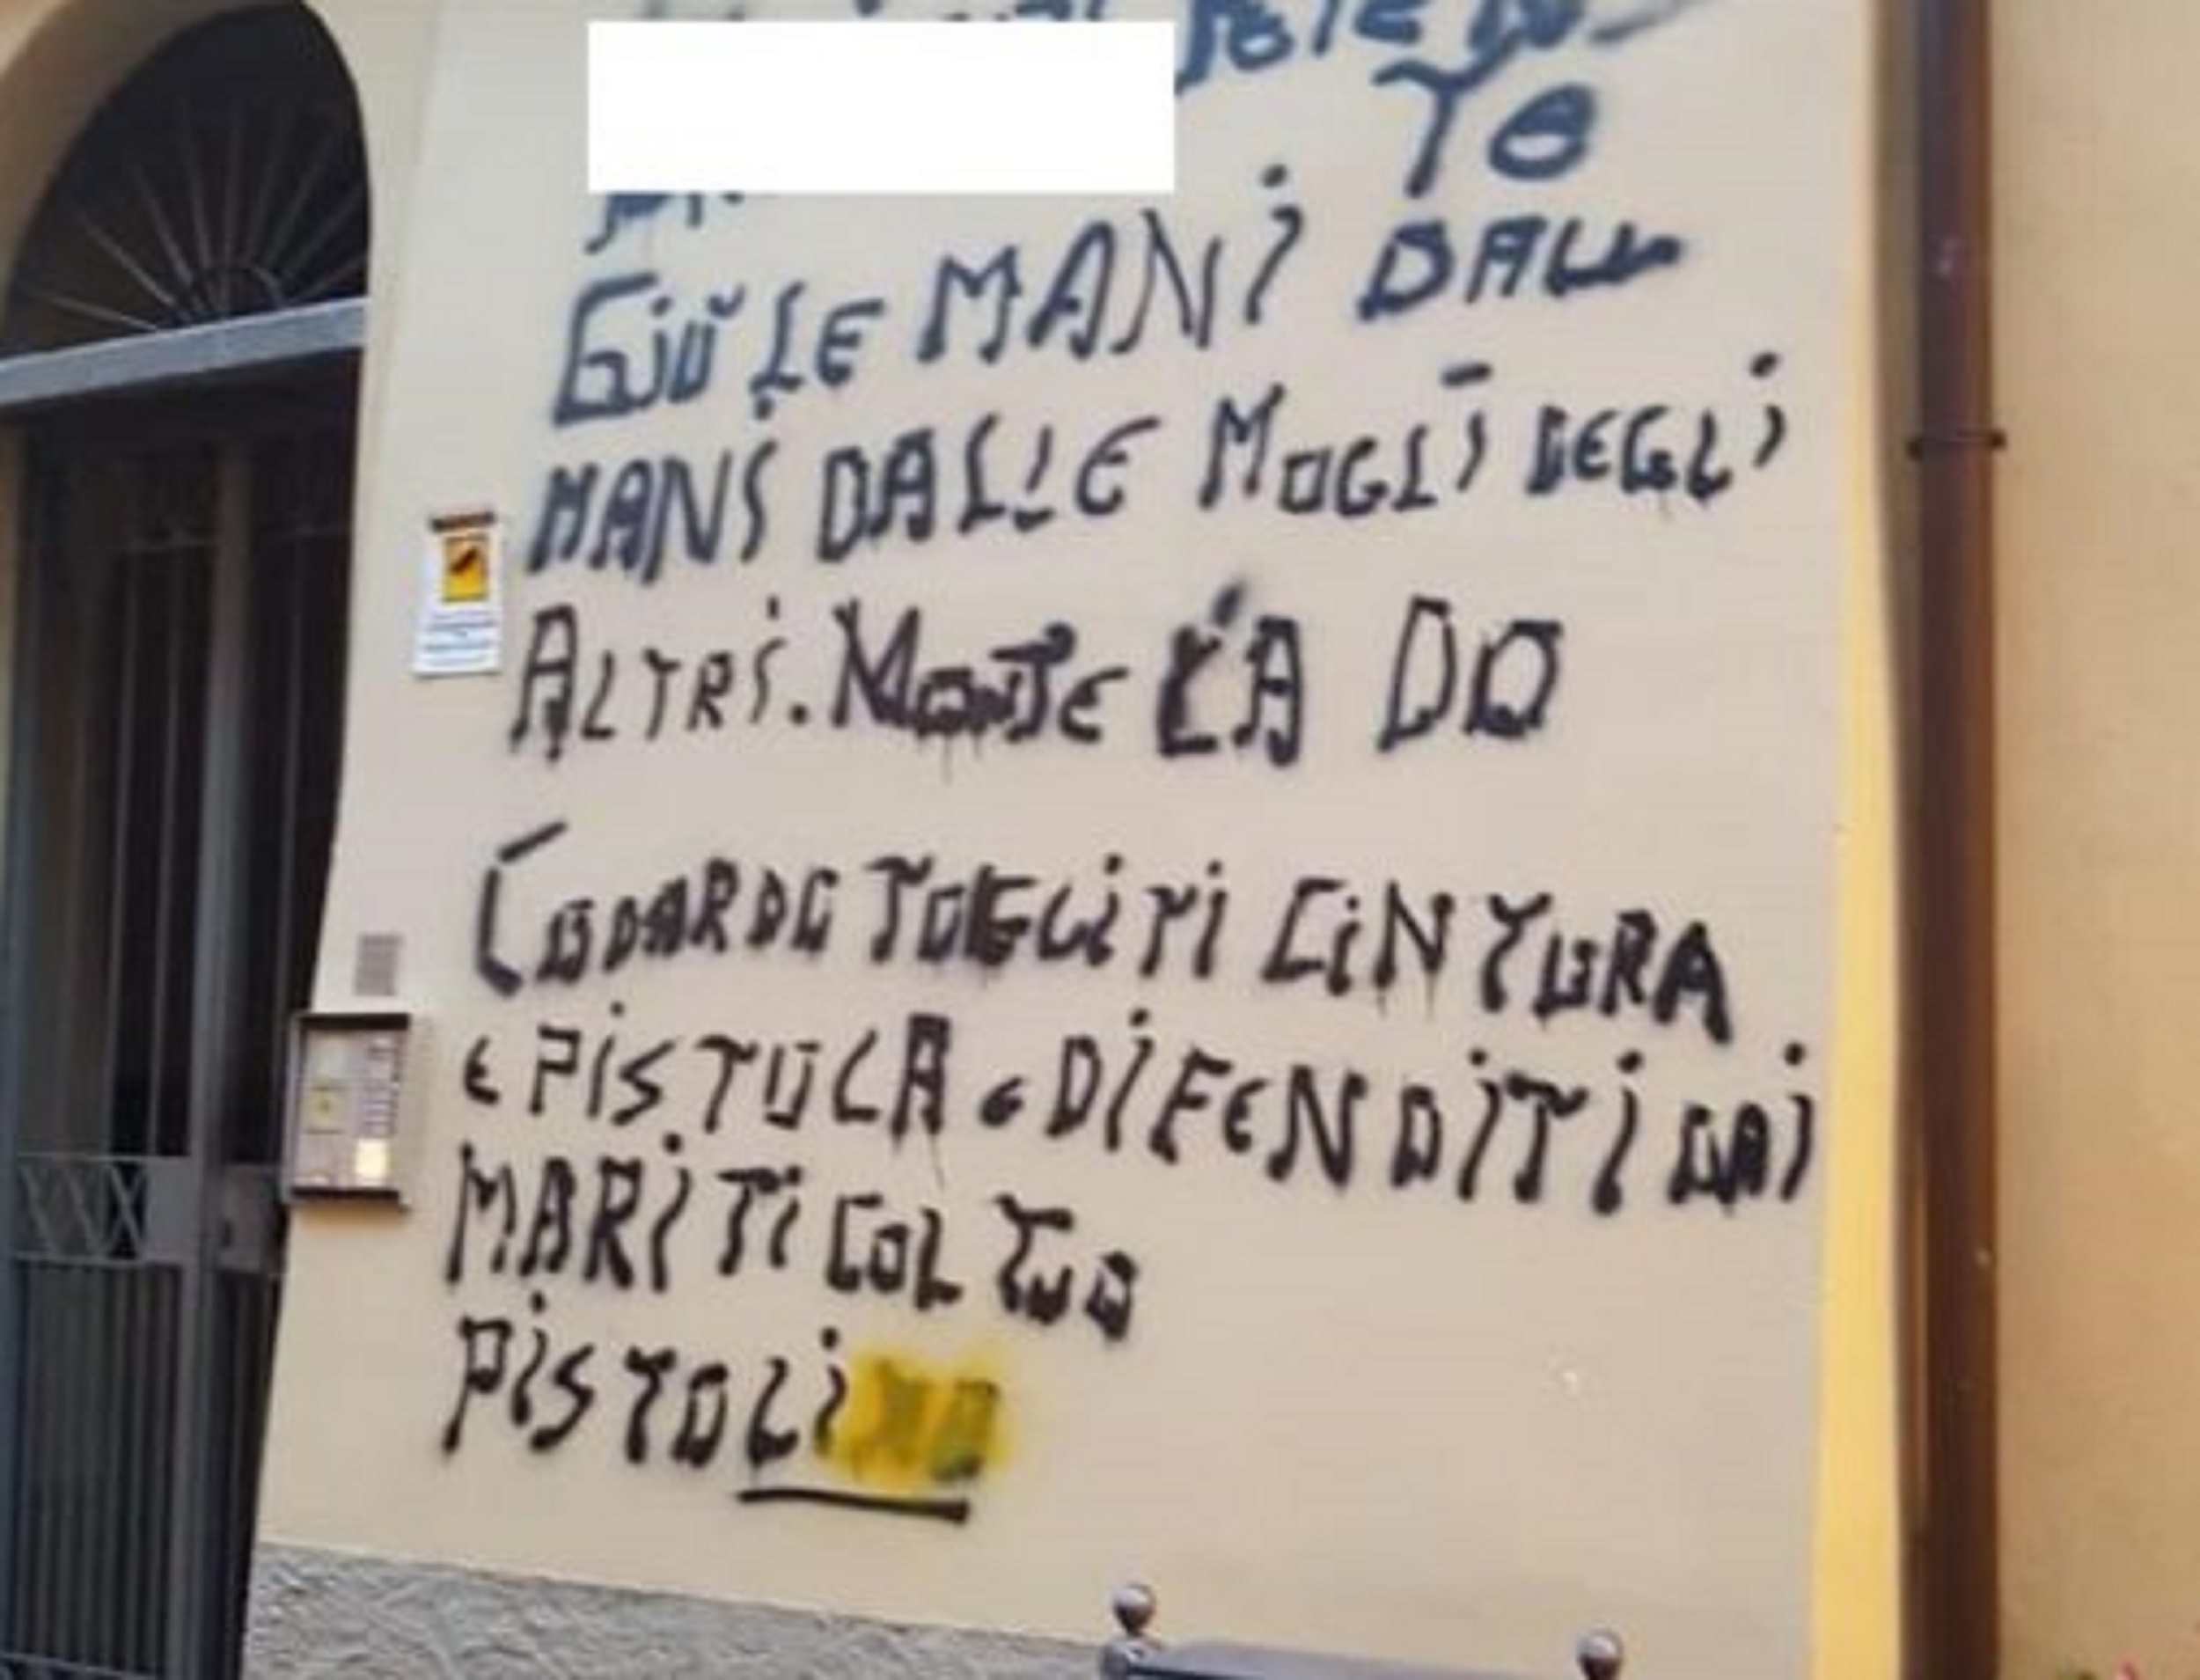 TO
GiÙ LE MANi DALL
MANi DALLE MOGLi DEGLi
ALTRi. MONTE LA DO
CODARDO TOGLiTi CiNTURA
E PiSTOLA e DIFENDiTi DAi
MARiTi COL TUO
PiSTOLiNO